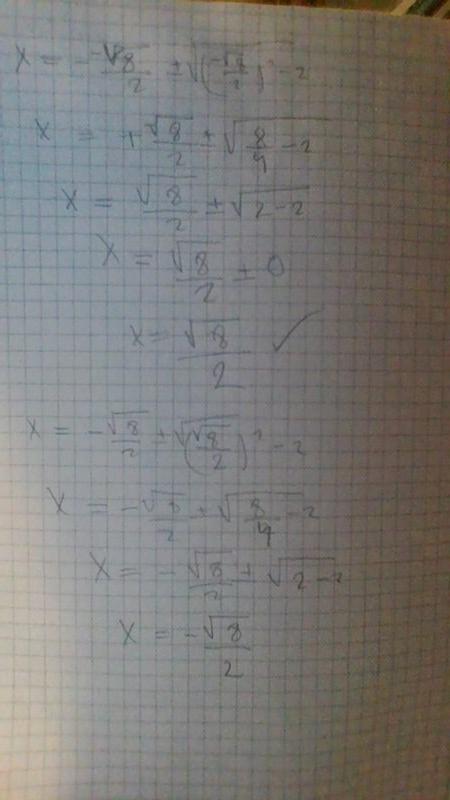 x = - -√8/2 ± √(-√8/2)² - 2
x = +√8/2 ± √8/4 - 2
x = √8/2 ± √2-2
x = √8/2 ± 0
x = √8/2 ✓
x = -√8/2 ± √(√8/2)² - 2
x = -√8/2 ± √8/4 - 2
x = -√8/2 ± √2-2
x = -√8/2